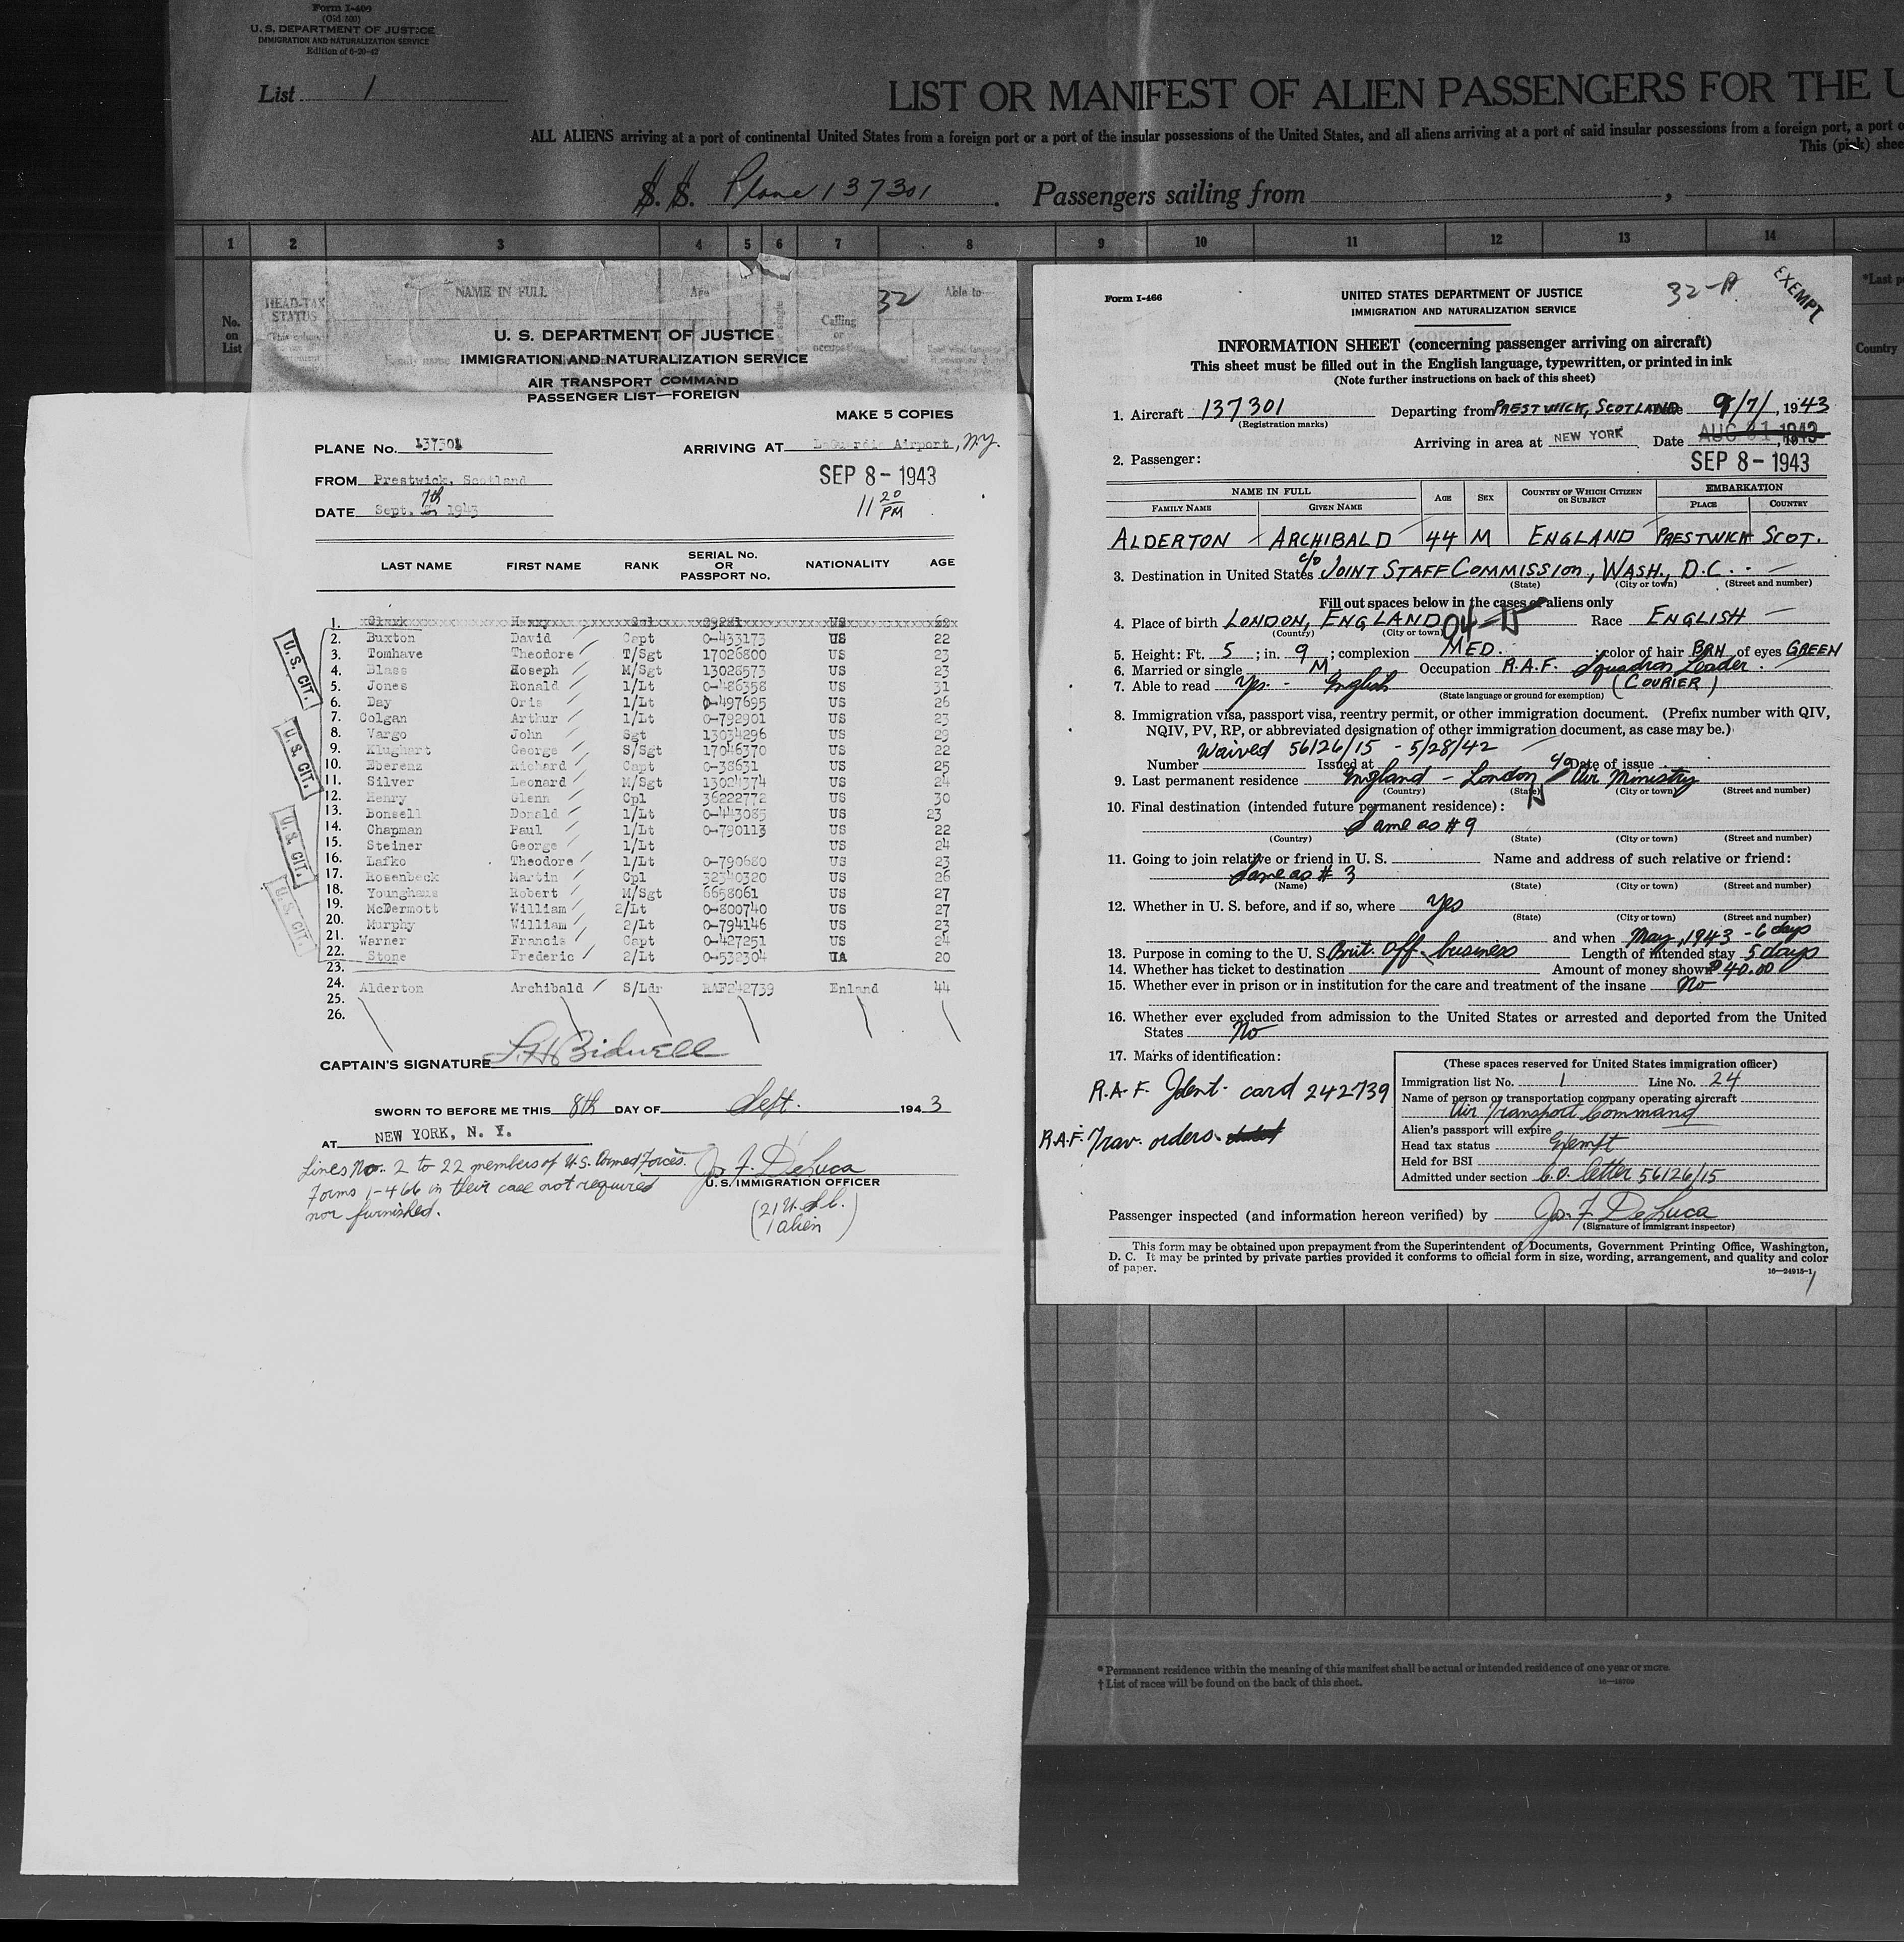 Form I-466
(Old 500)
U. S. DEPARTMENT OF JUSTICE
IMMIGRATION AND NATURALIZATION SERVICE
Edition of 6-20-42
List 1
LIST OR MANIFEST OF ALIEN PASSENGERS FOR THE U
ALL ALIENS arriving at a port of continental United States from a foreign port or a port of the insular possessions of the United States, and all aliens arriving at a port of said insular possessions from a foreign port, a port o
This (pink) shee
S. S. Plane 137301 . Passengers sailing from ,
1 2 3 4 5 6 7 8 9 10 11 12 13 14
No. on List
HEAD-TAX STATUS
NAME IN FULL
Family name
Age
Calling or occupation
Able to
*Last p
Country
32
U. S. DEPARTMENT OF JUSTICE
IMMIGRATION AND NATURALIZATION SERVICE
AIR TRANSPORT COMMAND
PASSENGER LIST—FOREIGN
MAKE 5 COPIES
PLANE No. 137301 ARRIVING AT LaGuardia Airport, N.Y.
FROM Prestwick, Scotland SEP 8 - 1943
DATE Sept. 7th 1943 11 20 PM
LAST NAME FIRST NAME RANK SERIAL No. OR PASSPORT No. NATIONALITY AGE
1. Clark Harry Col 29281 US
2. Buxton David Capt 0-433173 US 22
3. Tomhave Theodore T/Sgt 17026800 US 23
4. Blass Joseph M/Sgt 13028573 US 23
5. Jones Ronald 1/Lt 0-486358 US 31
6. Day Oris 1/Lt 0-497695 US 26
7. Colgan Arthur 1/Lt 0-792901 US 23
8. Vargo John Sgt 13034296 US 29
9. Klughart George S/Sgt 17046370 US 22
10. Eberenz Richard Capt 0-38631 US 25
11. Silver Leonard M/Sgt 13024374 US 24
12. Henry Glenn Cpl 36222772 US 30
13. Bonsell Donald 1/Lt 0-443085 US 23
14. Chapman Paul 1/Lt 0-790113 US 22
15. Steiner George 1/Lt US 24
16. Lafko Theodore 1/Lt 0-790680 US 23
17. Rosenbeck Martin Cpl 32340320 US 26
18. Younghans Robert M/Sgt 6658061 US 27
19. McDermott William 2/Lt 0-800740 US 27
20. Murphy William 2/Lt 0-794146 US 23
21. Warner Francis Capt 0-427251 US 24
22. Stone Frederic 2/Lt 0-532304 UA 20
23.
24. Alderton Archibald S/Ldr RAF242739 Enland 44
25.
26.
U. S. CIT.
U. S. CIT.
U. S. CIT.
U. S. CIT.
CAPTAIN'S SIGNATURE Bidwell
SWORN TO BEFORE ME THIS 8th DAY OF Sept. 1943
AT NEW YORK, N. Y.
Lines No. 2 to 22 members of U.S. Armed Forces.
Forms I-466 in their case not required
nor furnished.
Jo. F. DeLuca
U. S. IMMIGRATION OFFICER
(21 U.S.C.
1 alien)
Form I-466
UNITED STATES DEPARTMENT OF JUSTICE
IMMIGRATION AND NATURALIZATION SERVICE
32-A
EXEMPT
INFORMATION SHEET (concerning passenger arriving on aircraft)
This sheet must be filled out in the English language, typewritten, or printed in ink
(Note further instructions on back of this sheet)
1. Aircraft 137301 Departing from PRESTWICK, SCOTLAND Date 9/7/, 1943
(Registration marks)
Arriving in area at NEW YORK Date AUG 31 1943
SEP 8 - 1943
2. Passenger:
NAME IN FULL AGE SEX COUNTRY OF WHICH CITIZEN OR SUBJECT EMBARKATION
FAMILY NAME GIVEN NAME PLACE COUNTRY
ALDERTON ARCHIBALD 44 M ENGLAND PRESTWICK SCOT.
3. Destination in United States c/o JOINT STAFF COMMISSION, WASH., D.C.
(State) (City or town) (Street and number)
Fill out spaces below in the cases of aliens only
4. Place of birth LONDON, ENGLAND Race ENGLISH
(Country) (City or town)
5. Height: Ft. 5 ; in. 9 ; complexion MED. ; color of hair BRN of eyes GREEN
6. Married or single M Occupation R.A.F. Squadron Leader.
7. Able to read Yes - English (COURIER)
(State language or ground for exemption)
8. Immigration visa, passport visa, reentry permit, or other immigration document. (Prefix number with QIV,
NQIV, PV, RP, or abbreviated designation of other immigration document, as case may be.)
Waived 56126/15 - 5/28/42
Number Issued at Date of issue
9. Last permanent residence England - London c/o Air Ministry
(Country) (State) (City or town) (Street and number)
10. Final destination (intended future permanent residence):
Same as #9
(Country) (State) (City or town) (Street and number)
11. Going to join relative or friend in U. S. Name and address of such relative or friend:
Same as #3
(Name) (State) (City or town) (Street and number)
12. Whether in U. S. before, and if so, where Yes
(State) (City or town) (Street and number)
and when May, 1943 - 6 days
13. Purpose in coming to the U. S. Brit. Off. business Length of intended stay 5 days
14. Whether has ticket to destination Amount of money shown $40.00
15. Whether ever in prison or in institution for the care and treatment of the insane No
16. Whether ever excluded from admission to the United States or arrested and deported from the United
States No
17. Marks of identification:
R.A.F. Ident. card 242739
R.A.F. Trav. orders.
(These spaces reserved for United States immigration officer)
Immigration list No. 1 Line No. 24
Name of person or transportation company operating aircraft
Air Transport Command
Alien's passport will expire
Head tax status Exempt
Held for BSI
Admitted under section C.O. letter 56126/15
Passenger inspected (and information hereon verified) by Jo. F. DeLuca
(Signature of immigrant inspector)
This form may be obtained upon prepayment from the Superintendent of Documents, Government Printing Office, Washington,
D. C. It may be printed by private parties provided it conforms to official form in size, wording, arrangement, and quality and color
of paper.
16—24915-1
* Permanent residence within the meaning of this manifest shall be actual or intended residence of one year or more.
† List of races will be found on the back of this sheet.